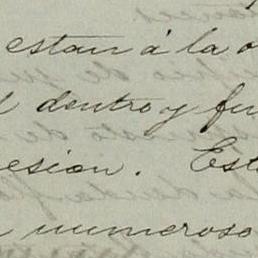 estan á la o
dentro y fu
esion. Est
numeroso